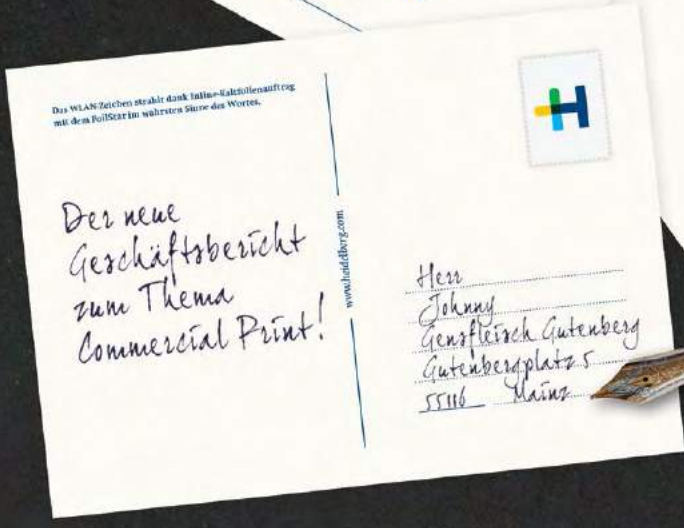 Das WLAN-Zeichen strahlt dank Inline-Kaltfolienauftrag
mit dem FoilStar im wahrsten Sinne des Wortes.
Der neue
Geschäftsbericht
zum Thema
Commercial Print!
www.heidelberg.com
Herr
Johnny
Gensfleisch Gutenberg
Gutenbergplatz 5
55116 Mainz